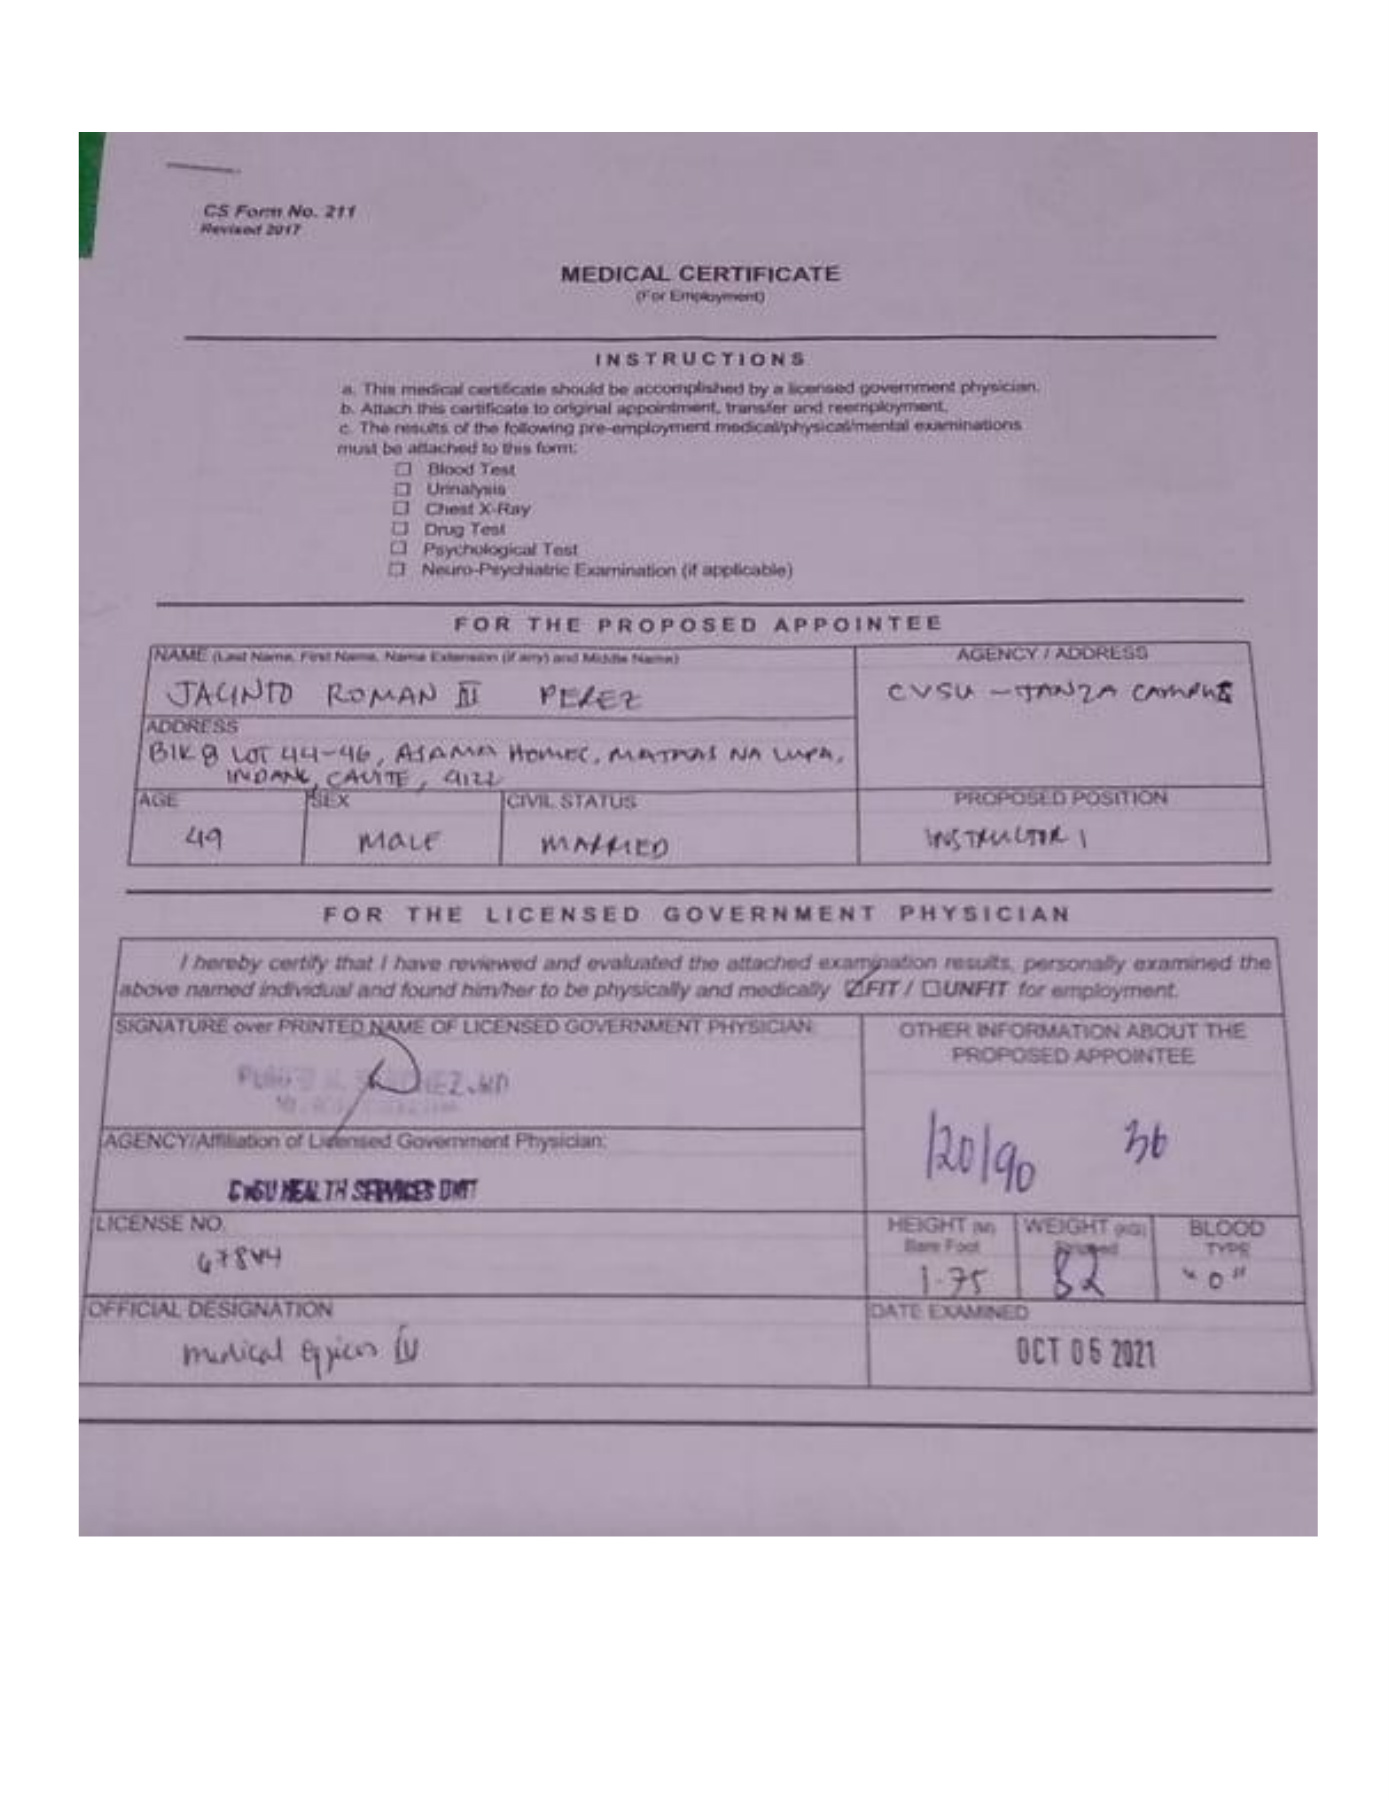 CS Form No. 211
Revised 2017
MEDICAL CERTIFICATE
(For Employment)
INSTRUCTIONS
a. This medical certificate should be accomplished by a licensed government physician.
b. Attach this certificate to original appointment, transfer and reemployment.
c. The results of the following pre-employment medical/physical/mental examinations
must be attached to this form:
☐ Blood Test
☐ Urinalysis
☐ Chest X-Ray
☐ Drug Test
☐ Psychological Test
☐ Neuro-Psychiatric Examination (if applicable)
FOR THE PROPOSED APPOINTEE
NAME (Last Name, First Name, Name Extension (if any) and Middle Name)
JACINTO ROMAN III PEREZ
AGENCY / ADDRESS
CVSU - TANZA CAMPUS
ADDRESS
Blk 8 LOT 44-46, HOMES, NA LUPA,
INDANG, CAVITE, 4122
AGE
49
SEX
MALE
CIVIL STATUS
MARRIED
PROPOSED POSITION
INSTRUCTOR 1
FOR THE LICENSED GOVERNMENT PHYSICIAN
I hereby certify that I have reviewed and evaluated the attached examination results, personally examined the
above named individual and found him/her to be physically and medically ☑FIT / ☐UNFIT for employment.
SIGNATURE over PRINTED NAME OF LICENSED GOVERNMENT PHYSICIAN:
OTHER INFORMATION ABOUT THE
PROPOSED APPOINTEE
120/90 36
AGENCY/Affiliation of Licensed Government Physician:
CvSU HEALTH SERVICES UNIT
LICENSE NO.
67844
HEIGHT (M)
Bare Foot
1.75
WEIGHT (KG)
Stripped
82
BLOOD
TYPE
"O"
OFFICIAL DESIGNATION
Medical Officer IV
DATE EXAMINED
OCT 06 2021